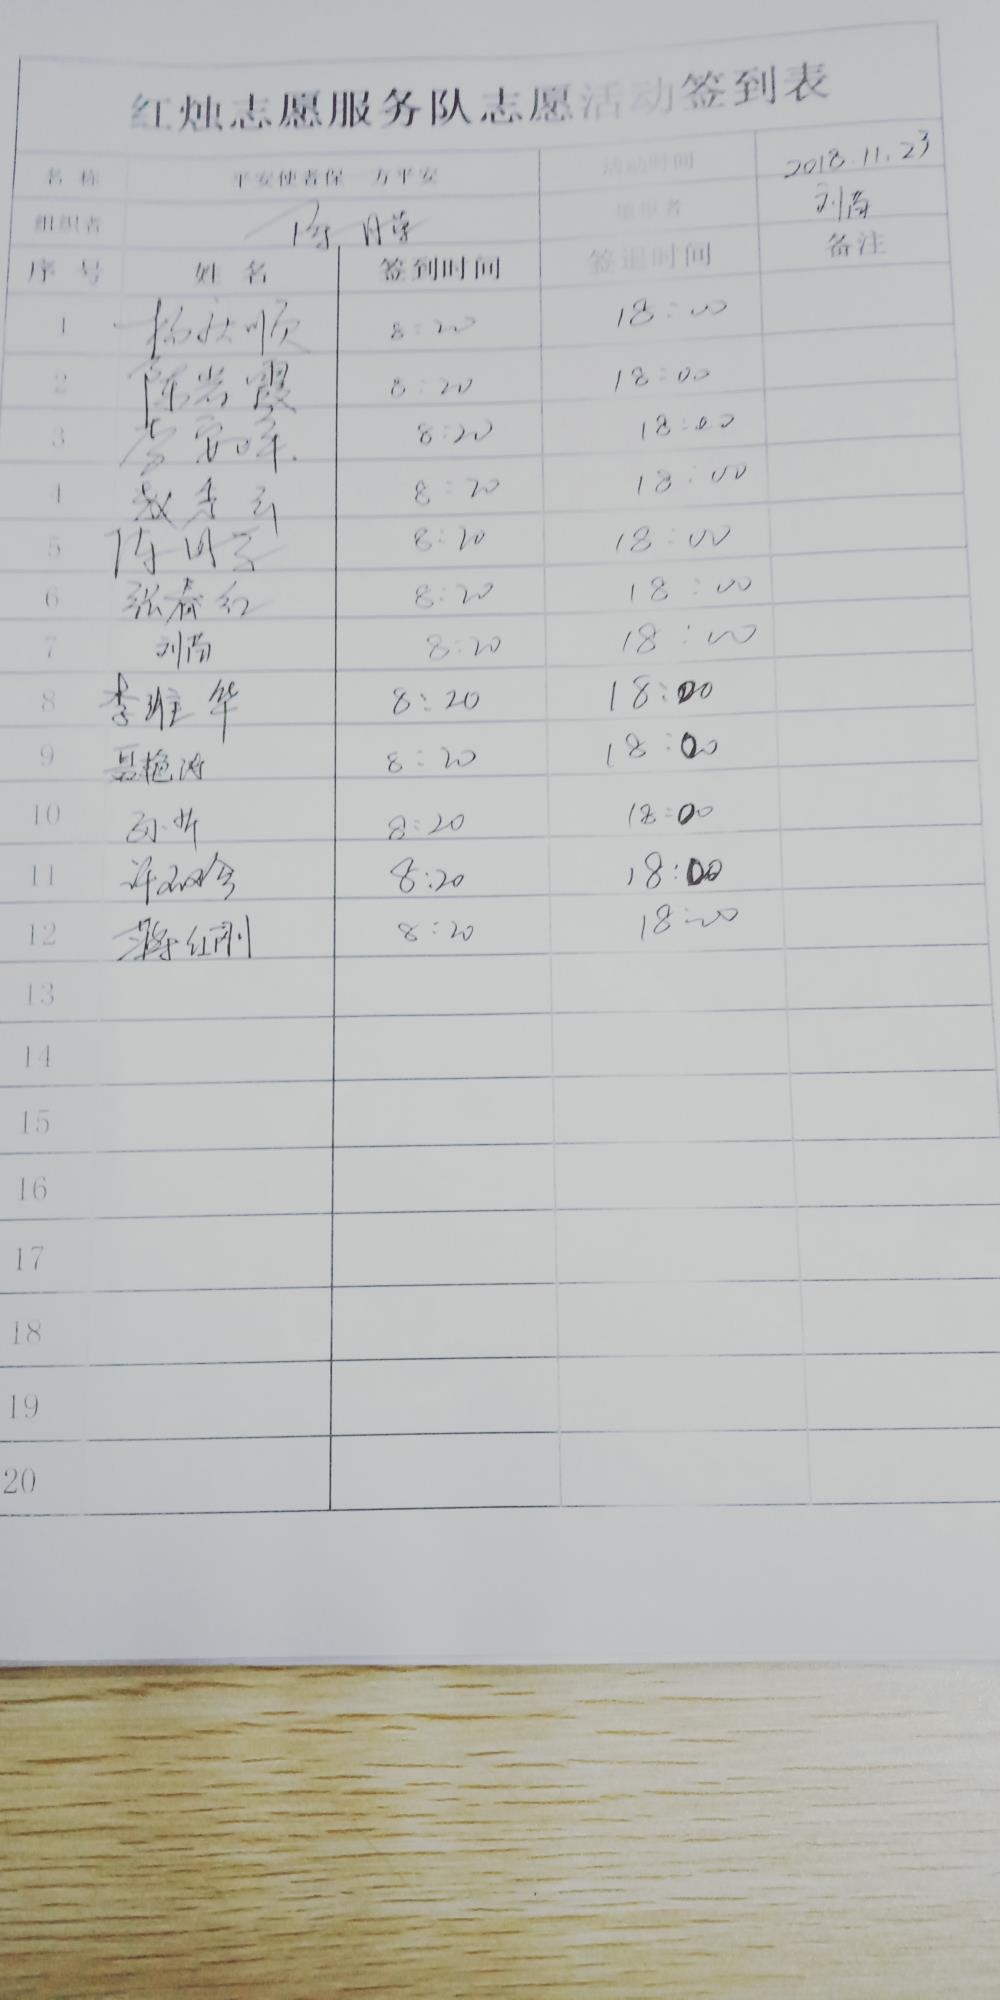 红烛志愿服务队志愿活动签到表
名 称 平安使者保一方平安 活动时间 2018.11.23
组织者 陈月 刘尚
序 号 姓 名 签到时间 签退时间 备注
1 杨秋顺 8:20 18:00
2 陈岩霞 8:20 18:00
3 8:20 18:00
4 8:20 18:00
5 陈月 8:20 18:00
6 张春红 8:20 18:00
7 刘尚 8:20 18:00
8 李维华 8:20 18:00
9 聂艳涛 8:20 18:00
10 8:20 18:00
11 许双全 8:20 18:00
12 蒋红刚 8:20 18:00
13
14
15
16
17
18
19
20